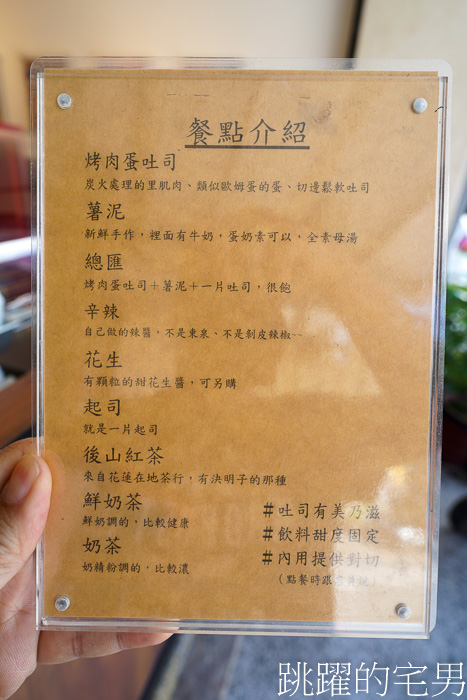 餐點介紹
烤肉蛋吐司
炭火處理的里肌肉、類似歐姆蛋的蛋、切邊鬆軟吐司
薯泥
新鮮手作，裡面有牛奶，蛋奶素可以，全素母湯
總匯
烤肉蛋吐司＋薯泥＋一片吐司，很飽
辛辣
自己做的辣醬，不是東泉、不是剝皮辣椒~~
花生
有顆粒的甜花生醬，可另購
起司
就是一片起司
後山紅茶
來自花蓮在地茶行，有決明子的那種
鮮奶茶
鮮奶調的，比較健康
奶茶
奶精粉調的，比較濃
#吐司有美乃滋
#飲料甜度固定
#內用提供對切
（點餐時跟
跳躍的宅男